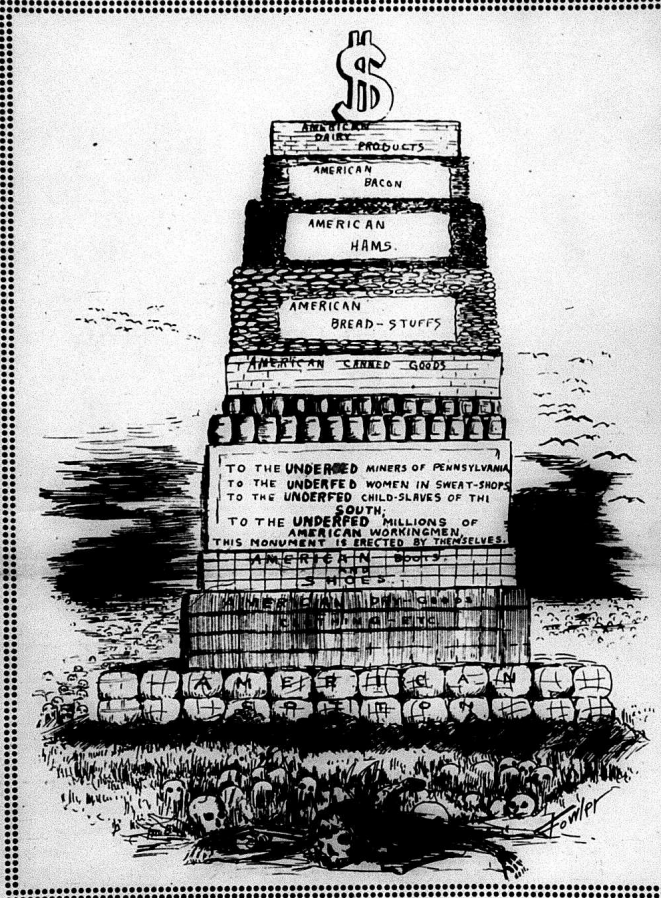 $
AMERICAN
DAIRY
PRODUCTS
AMERICAN
BACON
AMERICAN
HAMS.
AMERICAN
BREAD-STUFFS
AMERICAN CANNED GOODS
TO THE UNDERFED MINERS OF PENNSYLVANIA,
TO THE UNDERFED WOMEN IN SWEAT-SHOPS
TO THE UNDERFED CHILD-SLAVES OF THE
SOUTH;
TO THE UNDERFED MILLIONS OF
AMERICAN WORKINGMEN,
THIS MONUMENT IS ERECTED BY THEMSELVES.
AMERICAN BOOTS.
AND
SHOES.
AMERICAN DRY-GOODS
CLOTHING-ETC
AMERICAN
COTTON
Fowler